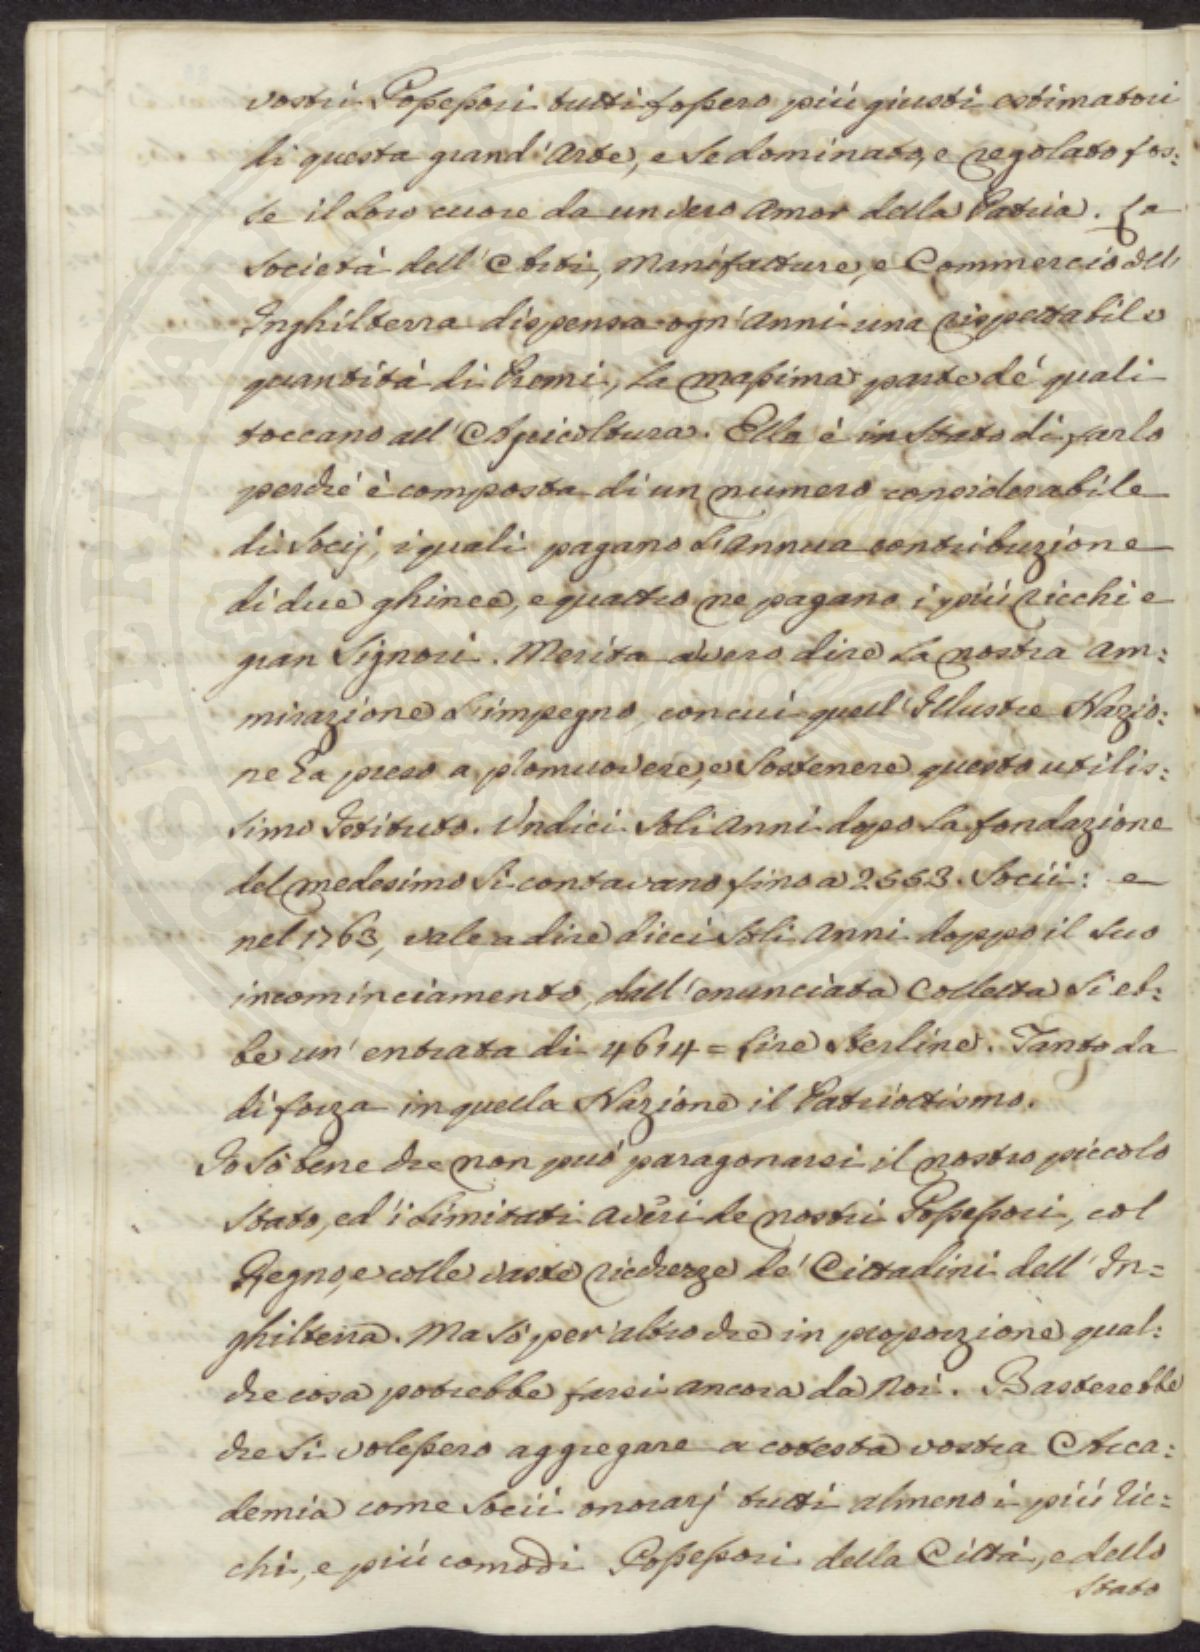 vostri Possessori tutti fossero più giusti estimatori
di questa grand'Arte, e se dominato, e regolato fos:
se il loro cuore da un vero Amor della Patria. La
Società dell'Arti, Manifatture, e Commercio dell'
Inghilterra dispensa ogn'Anni una rispettabile
quantità di Premi, la massima parte de' quali
toccano all'Agricoltura. Ella è in stato di farlo
perchè è composta di un numero considerabile
di Socij, i quali pagano l'Annua contribuzione
di due ghinee, e quattro ne pagano i più ricchi e
gran Signori. Merita a vero dire la nostra am:
mirazione l'impegno, con cui quell'Illustre Nazio:
ne ha preso a plomuovere, e sostenere questo utilis:
simo Istituto. Undici soli Anni dopo la fondazione
del medesimo si contavano fino a 2553. Socii: e
nel 1763, vale a dire dieci soli Anni doppo il suo
incominciamento, dall'enunciata Colletta si eb:
be un'entrata di 4614 = lire sterline. Tanto da
di forza in quella Nazione il Patriottismo.
Io sò bene che non può paragonarsi il nostro piccolo
Stato, ed'i limitati averi de nostri Possessori, col
Regno, e colle vaste ricchezze de' Cittadini dell'In=
ghilterra. Ma sò per'altro che in proporzione qual:
che cosa potrebbe farsi ancora da Noi. Basterebbe
che si volessero aggregare a cotesta vostra Acca:
demia come Socii onorarj tutti almeno i più ric:
chi, e più comodi Possessori della Città, e dello
Stato